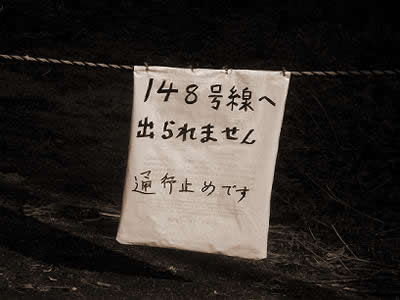 148号線へ
出られません
通行止めです